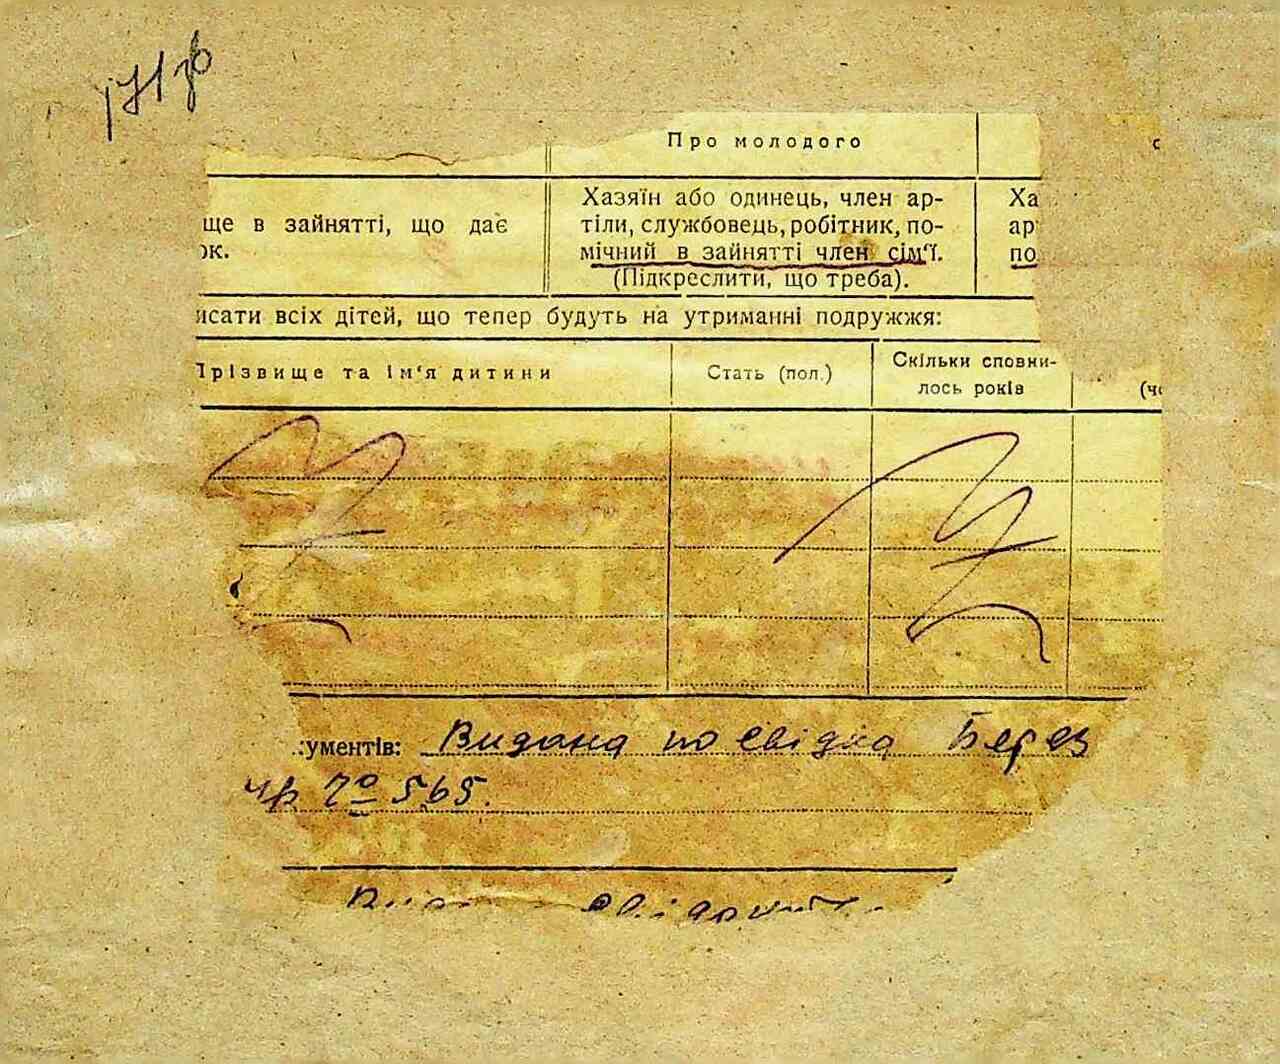 171 зв
Про молодого
с
ще в зайнятті, що дає
ок.
Хазяїн або одинець, член ар-
тіли, службовець, робітник, по-
мічний в зайнятті член сім'ї.
(Підкреслити, що треба).
Ха
ар
по
исати всіх дітей, що тепер будуть на утриманні подружжя:
Прізвище та ім'я дитини
Стать (пол.)
Скільки сповни-
лось років
(чо
кументів: Видана посвідка Берез
№ 565.